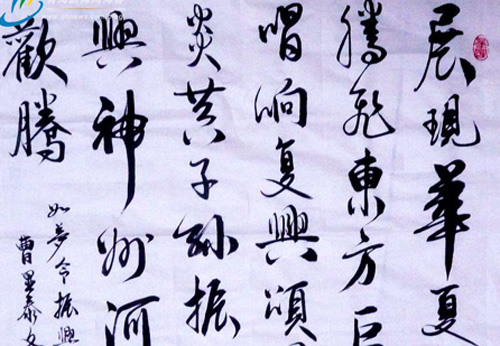 展現華夏
騰飛東方巨
唱响复興頌
炎黄子孙振
興神州河
歡騰
如夢令振興
曹星泰